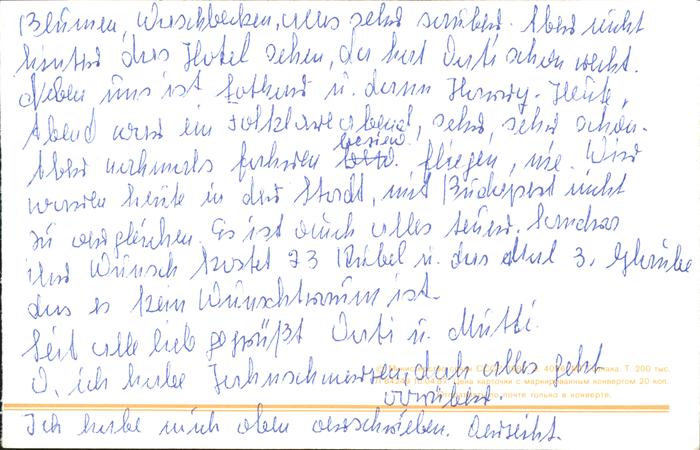 Blumen, Waschbecken, alles sehr sauber. Aber nicht
hinter das Hotel sehen, da hat Vati schon recht.
Neben uns ist Lothar u. dann Harry. Heute,
Abend war ein Folkloreabend, sehr, sehr schön.
Aber nochmals fahren besser fliegen, nie. Wir
waren heute in der Stadt, mit Budapest nicht
zu vergleichen. Es ist auch alles teuer. Sandras
ihr Wunsch kostet 73 Rubel u. das Mal 3. Glaube
das es kein Wunschtraum ist.
Seit alle lieb gegrüßt Vati u. Mutti.
O, ich habe Zahnschmerzen, doch alles geht
vorüber.
Ich habe mich oben verschrieben. Verzeiht.
Т. 200 тыс.
Цена карточки с маркированным конвертом 20 коп.
по почте только в конверте.